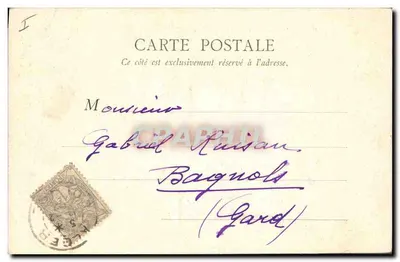 I
CARTE POSTALE
Ce côté est exclusivement réservé à l'adresse.
Monsieur
Gabriel
Bagnols
(Gard)